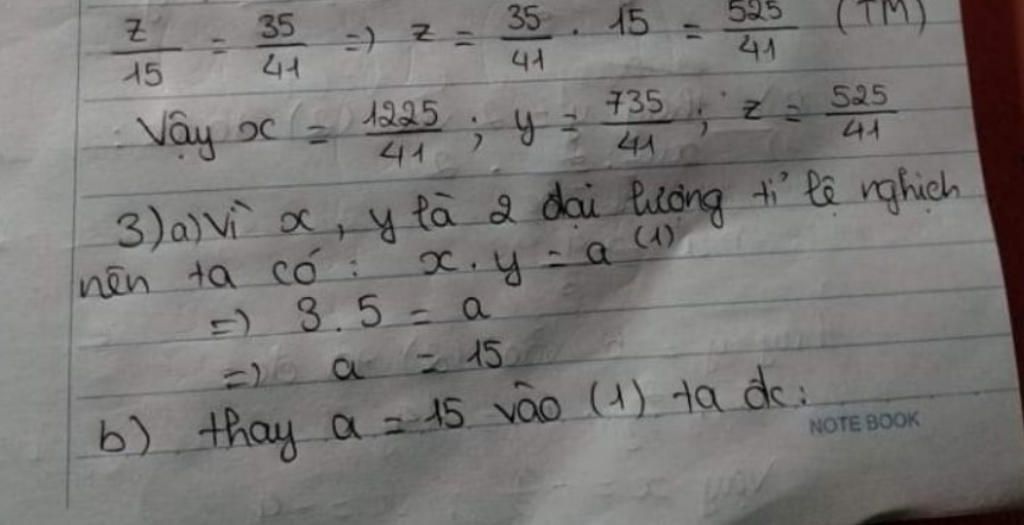 z/15 = 35/41 => z = 35/41 . 15 = 525/41 (TM)
Vậy x = 1225/41 ; y = 735/41 ; z = 525/41
3)a) Vì x, y là 2 đại lượng tỉ lệ nghịch
nên ta có : x . y = a (1)
=> 3 . 5 = a
=> a = 15
b) thay a = 15 vào (1) ta đc :
NOTE BOOK